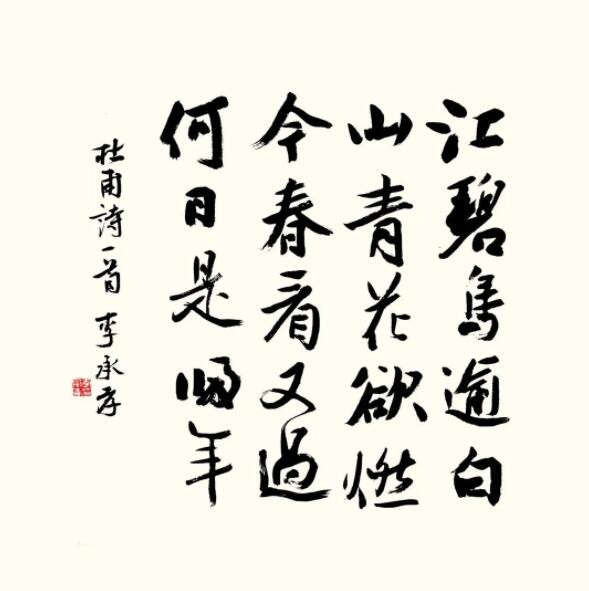 江碧鳥逾白
山青花欲燃
今春看又過
何日是歸年
杜甫詩一首 李承存